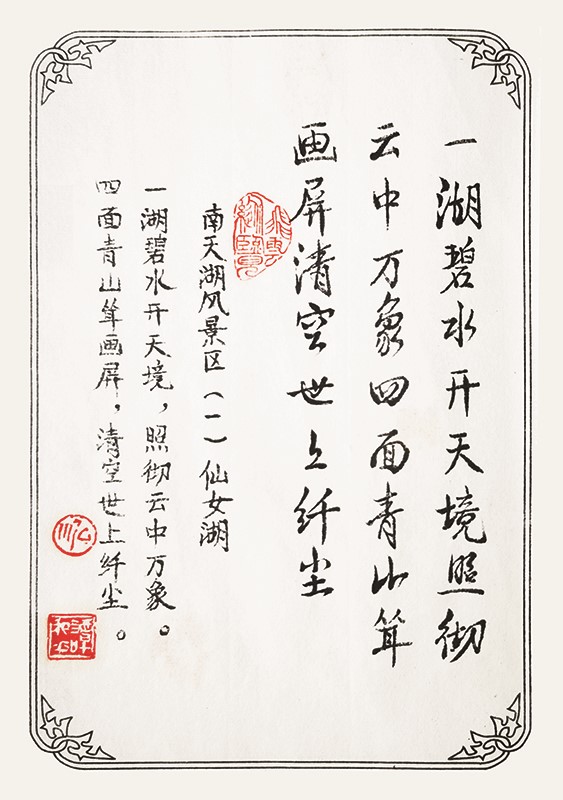 一湖碧水开天境照彻
云中万象四面青山耸
画屏清空世上纤尘
南天湖风景区（一）仙女湖
一湖碧水开天境，照彻云中万象。
四面青山耸画屏，清空世上纤尘。